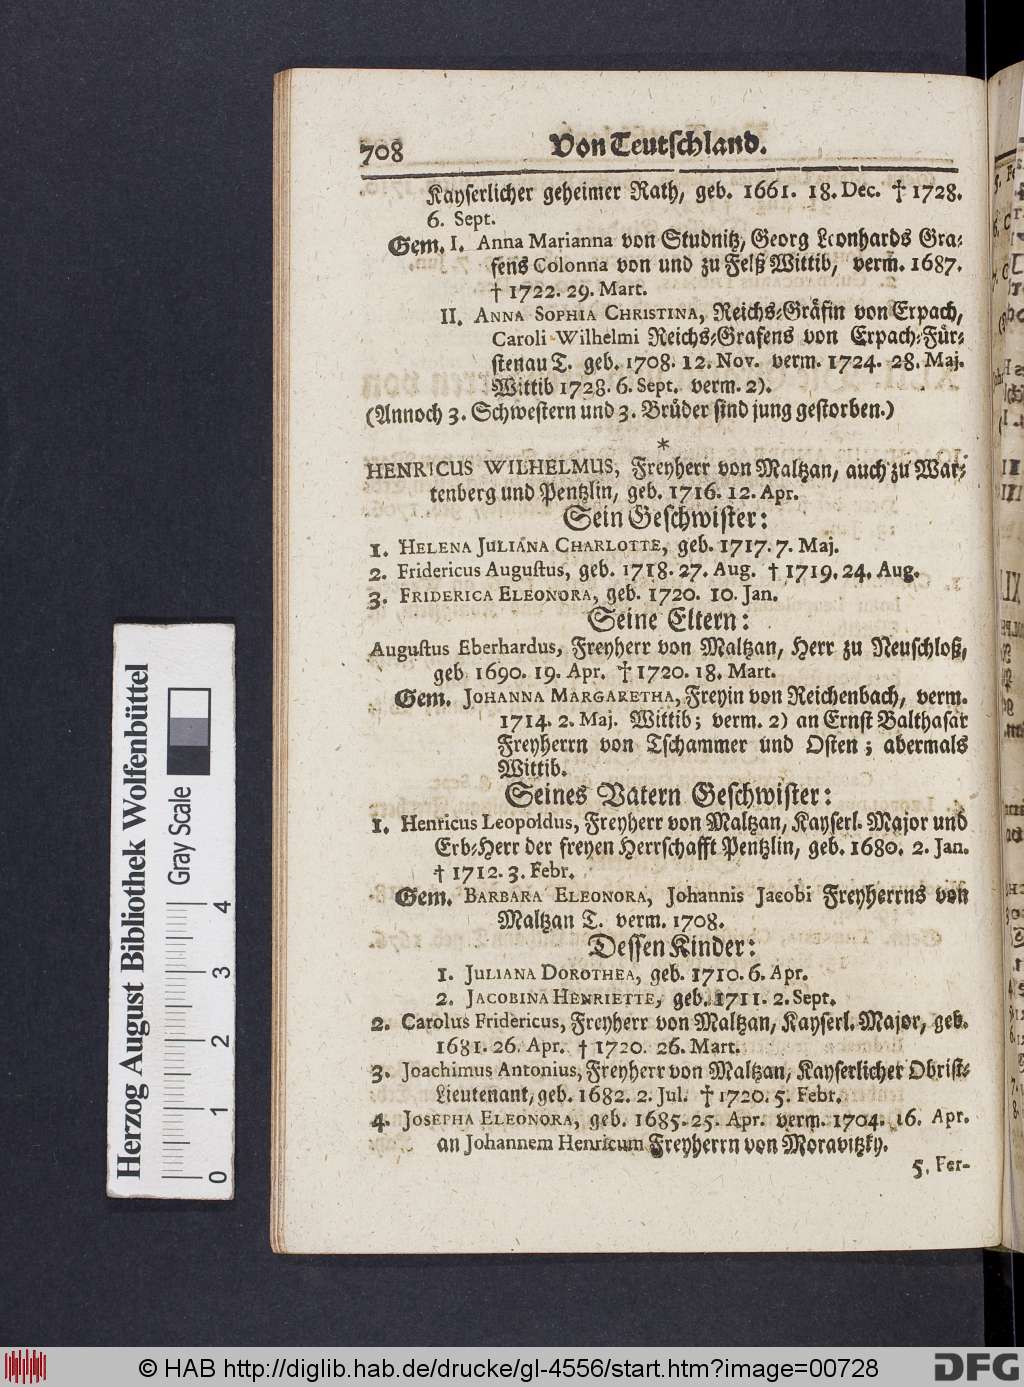 708 Von Teutschland.
Kayserlicher geheimer Rath, geb. 1661. 18. Dec. † 1728.
6. Sept.
Gem. I. Anna Marianna von Studnitz, Georg Leonhards Gra-
fens Colonna von und zu Felß Wittib, verm. 1687.
† 1722. 29. Mart.
II. ANNA SOPHIA CHRISTINA, Reichs-Gräfin von Erpach,
Caroli Wilhelmi Reichs-Grafens von Erpach-Für-
stenau T. geb. 1708. 12. Nov. verm. 1724. 28. Maj.
Wittib 1728. 6. Sept. verm. 2).
(Annoch 3. Schwestern und 3. Brüder sind jung gestorben.)
*
HENRICUS WILHELMUS, Freyherr von Maltzan, auch zu War-
tenberg und Pentzlin, geb. 1716. 12. Apr.
Sein Geschwister:
1. HELENA JULIANA CHARLOTTE, geb. 1717. 7. Maj.
2. Fridericus Augustus, geb. 1718. 27. Aug. † 1719. 24. Aug.
3. FRIDERICA ELEONORA, geb. 1720. 10. Jan.
Seine Eltern:
Augustus Eberhardus, Freyherr von Maltzan, Herr zu Neuschloß,
geb. 1690. 19. Apr. † 1720. 18. Mart.
Gem. JOHANNA MARGARETHA, Freyin von Reichenbach, verm.
1714. 2. Maj. Wittib; verm. 2) an Ernst Balthasar
Freyherrn von Tschammer und Osten; abermals
Wittib.
Seines Vatern Geschwister:
1. Henricus Leopoldus, Freyherr von Maltzan, Kayserl. Major und
Erb-Herr der freyen Herrschafft Pentzlin, geb. 1680. 2. Jan.
† 1712. 3. Febr.
Gem. BARBARA ELEONORA, Johannis Jacobi Freyherrns von
Maltzan T. verm. 1708.
Dessen Kinder:
1. JULIANA DOROTHEA, geb. 1710. 6. Apr.
2. JACOBINA HENRIETTE, geb. 1711. 2. Sept.
2. Carolus Fridericus, Freyherr von Maltzan, Kayserl. Major, geb.
1681. 26. Apr. † 1720. 26. Mart.
3. Joachimus Antonius, Freyherr von Maltzan, Kayserlicher Obrist-
Lieutenant, geb. 1682. 2. Jul. † 1720. 5. Febr.
4. JOSEPHA ELEONORA, geb. 1685. 25. Apr. verm. 1704. 16. Apr.
an Johannem Henricum Freyherrn von Moravitzky.
5. Fer-
Herzog August Bibliothek Wolfenbüttel
Gray Scale
0 1 2 3 4
© HAB http://diglib.hab.de/drucke/gl-4556/start.htm?image=00728
DFG